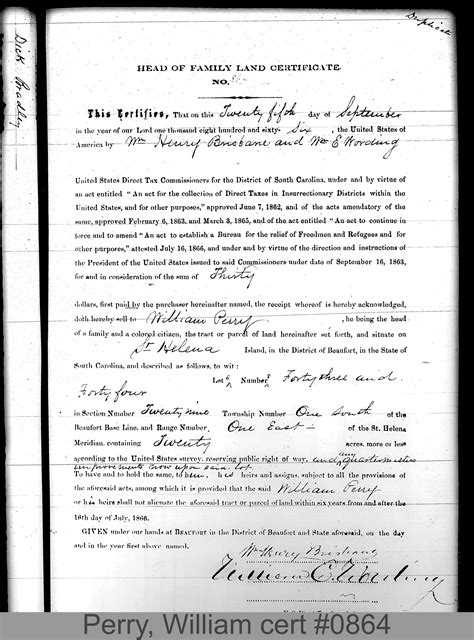 Duplicate
Dick Bradley
HEAD OF FAMILY LAND CERTIFICATE.
NO.
This Certifies, That on this Twenty fifth day of September
in the year of our Lord one thousand eight hundred and sixty-six, the United States of
America by Wm Henry Brisbane and Wm E Wording
United States Direct Tax Commissioners for the District of South Carolina, under and by virtue of
an act entitled "An act for the collection of Direct Taxes in Insurrectionary Districts within the
United States, and for other purposes," approved June 7, 1862, and of the acts amendatory of the
same, approved February 6, 1863, and March 3, 1865, and of the act entitled "An act to continue in
force and to amend "An act to establish a Bureau for the relief of Freedmen and Refugees and for
other purposes," attested July 16, 1866, and under and by virtue of the direction and instructions of
the President of the United States issued to said Commissioners under date of September 16, 1863,
for and in consideration of the sum of Thirty
dollars, first paid by the purchaser hereinafter named, the receipt whereof is hereby acknowledged,
doth hereby sell to William Perry, he being the head
of a family and a colored citizen, the tract or parcel of land hereinafter set forth, and situate on
St Helena Island, in the District of Beaufort, in the State of
South Carolina, and described as follows, to wit:
Lots Numbers Forty three and
Forty four
in Section Number Twenty nine Township Number One South of the
Beaufort Base Line, and Range Number One East of the St. Helena
Meridian, containing Twenty acres, more or less
according to the United States survey, reserving public right of way, and any quartermasters
improvements now upon said lot.
To have and to hold the same, to him, his heirs and assigns, subject to all the provisions of
the aforesaid acts, among which it is provided that the said William Perry
or his heirs shall not alienate the aforesaid tract or parcel of land within six years from and after the
16th day of July, 1866.
GIVEN under our hands at BEAUFORT in the District of Beaufort and State aforesaid, on the day
and in the year first above named.
Wm Henry Brisbane
William E. Wording
Perry, William cert #0864